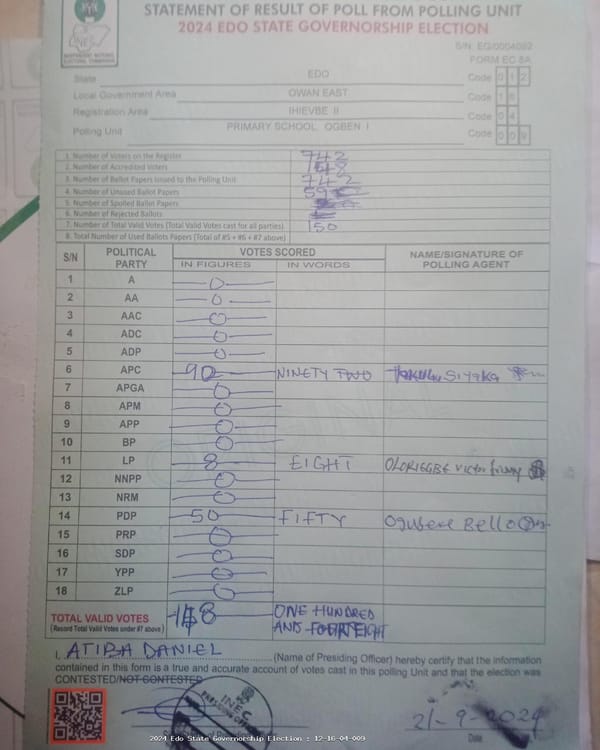 STATEMENT OF RESULT OF POLL FROM POLLING UNIT
2024 EDO STATE GOVERNORSHIP ELECTION
S/N: EG/0004092
FORM EC 8A
State EDO Code 0 1 2
Local Government Area OWAN EAST Code 1 6
Registration Area IHIEVBE II Code 0 4
Polling Unit PRIMARY SCHOOL OGBEN I Code 0 0 9
1. Number of Voters on the Register 742
2. Number of Accredited Voters
3. Number of Ballot Papers Issued to the Polling Unit 742
4. Number of Unused Ballot Papers
5. Number of Spoiled Ballot Papers
6. Number of Rejected Ballots
7. Number of Total Valid Votes (Total Valid Votes cast for all parties) 150
8. Total Number of Used Ballots Papers (Total of #5 + #6 + #7 above)
S/N POLITICAL PARTY VOTES SCORED NAME/SIGNATURE OF POLLING AGENT
IN FIGURES IN WORDS
1 A 0
2 AA 0
3 AAC 0
4 ADC 0
5 ADP 0
6 APC 92 NINETY TWO
7 APGA 0
8 APM 0
9 APP 0
10 BP 0
11 LP 8 EIGHT
12 NNPP 0
13 NRM 0
14 PDP 50 FIFTY Bello
15 PRP 0
16 SDP 0
17 YPP 0
18 ZLP 0
TOTAL VALID VOTES ONE HUNDRED
(Record Total Valid Votes under #7 above) AND
I, ATIBA DANIEL (Name of Presiding Officer) hereby certify that the information
contained in this form is a true and accurate account of votes cast in this polling Unit and that the election was
CONTESTED/NOT CONTESTED
INEC
21-9-2024
Date
2024 Edo State Governorship Election : 12-16-04-009